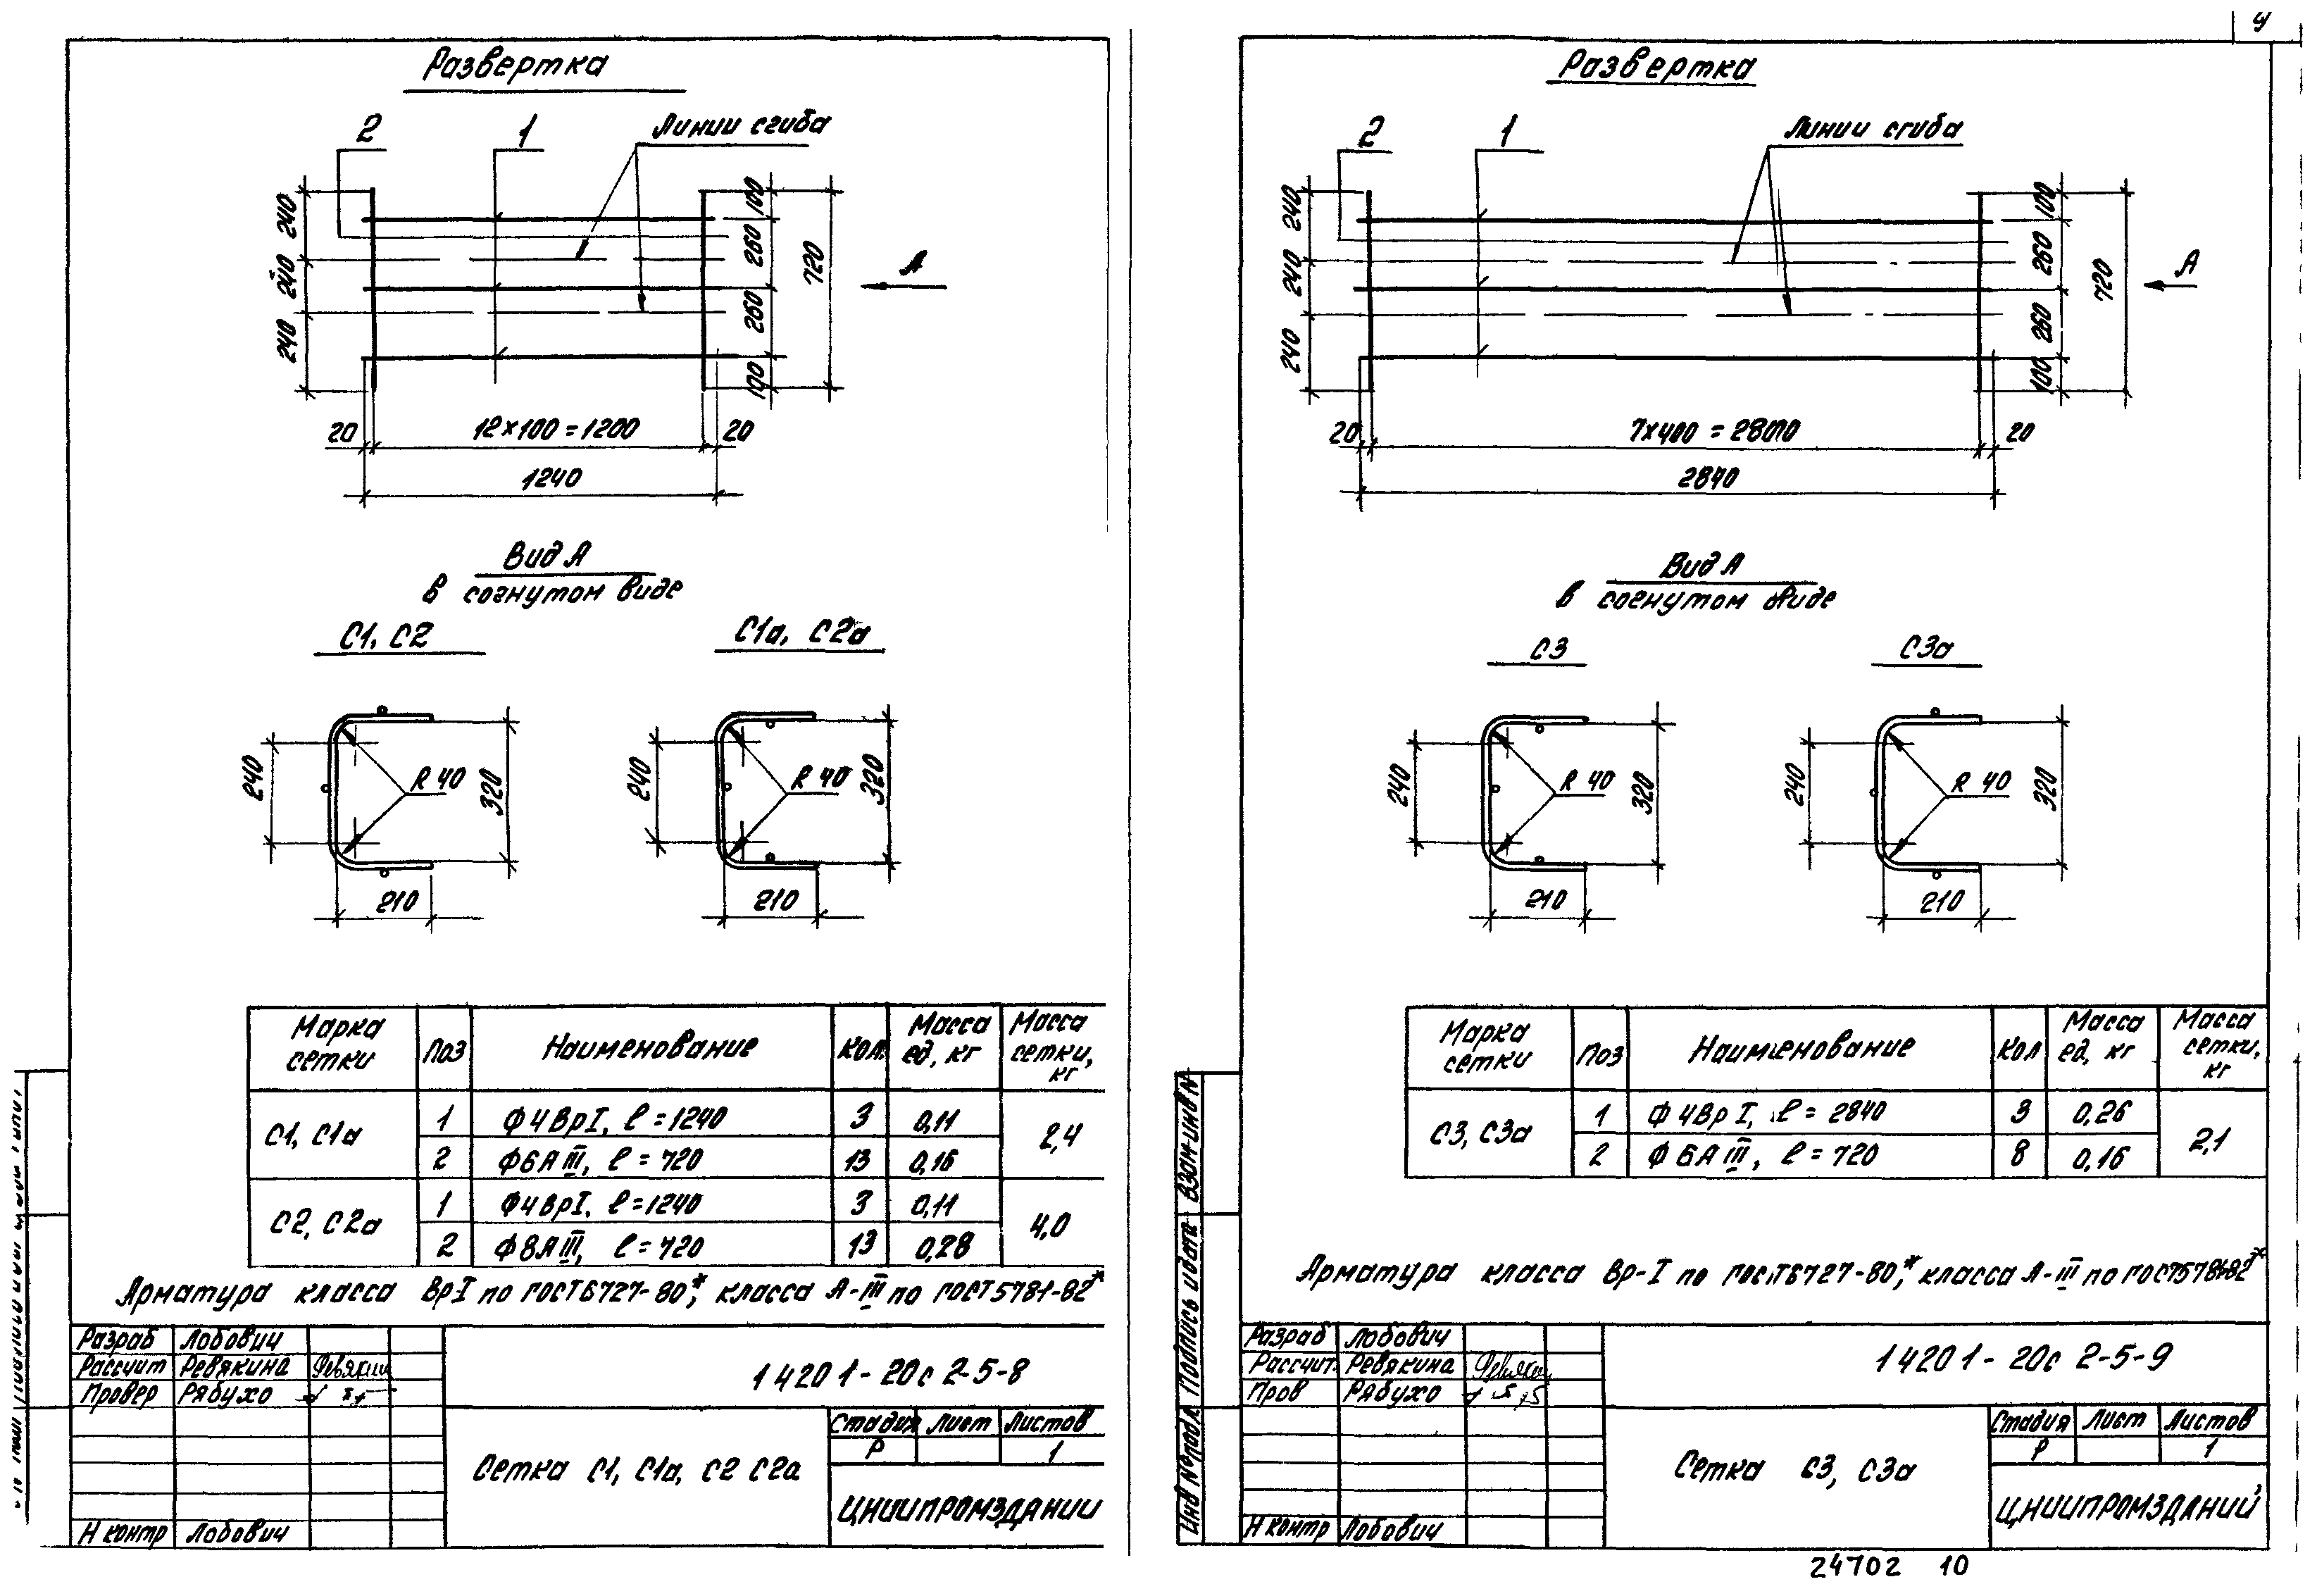 Развертка
2
1
Линии сгиба
240
240
240
100
260
260
100
720
А
20
12×100=1200
20
1240
Вид А
в согнутом виде
С1, С2
С1а, С2а
240
R 40
320
210
240
R 40
320
210
Марка сетки
Поз
Наименование
Кол.
Масса ед, кг
Масса сетки, кг
С1, С1а
1
Ф4ВрI, ℓ=1240
3
0,11
2,4
2
Ф6АIII, ℓ=720
13
0,16
С2, С2а
1
Ф4ВрI, ℓ=1240
3
0,11
4,0
2
Ф8АIII, ℓ=720
13
0,28
Арматура класса Вр-I по ГОСТ 6727-80*, класса А-III по ГОСТ 5781-82*
Разраб Лобович
Рассчит Ревякина
Провер Рябухо
Н контр Лобович
1 420 1-20с 2-5-8
Сетка С1, С1а, С2 С2а
Стадия Лист Листов
Р 1
ЦНИИПРОМЗДАНИИ
Развертка
2
1
Линии сгиба
240
240
240
100
260
260
100
720
А
20
7×400=2800
20
2840
Вид А
в согнутом виде
С3
С3а
240
R 40
320
210
240
R 40
320
210
Марка сетки
Поз
Наименование
Кол
Масса ед, кг
Масса сетки, кг
С3, С3а
1
Ф4ВрI, ℓ=2840
3
0,26
2,1
2
Ф6АIII, ℓ=720
8
0,16
Арматура класса Вр-I по ГОСТ 6727-80*, класса А-III по ГОСТ 5781-82*
Взам инв N
Подпись и дата
Инв № подл
Разраб Лобович
Рассчит. Ревякина
Пров Рябухо
Н контр Лобович
1 420 1-20с 2-5-9
Сетка С3, С3а
Стадия Лист Листов
Р 1
ЦНИИПРОМЗДАНИЙ
24702 10